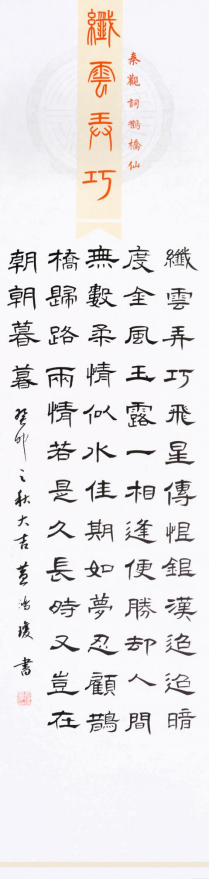 纖雲弄巧
秦觀詞鵲橋仙
纖雲弄巧飛星傳恨銀漢迢迢暗
度金風玉露一相逢便勝却人間
無數柔情似水佳期如夢忍顧鵲
橋歸路兩情若是久長時又豈在
朝朝暮暮
癸卯之秋大吉黃鴻瓊書